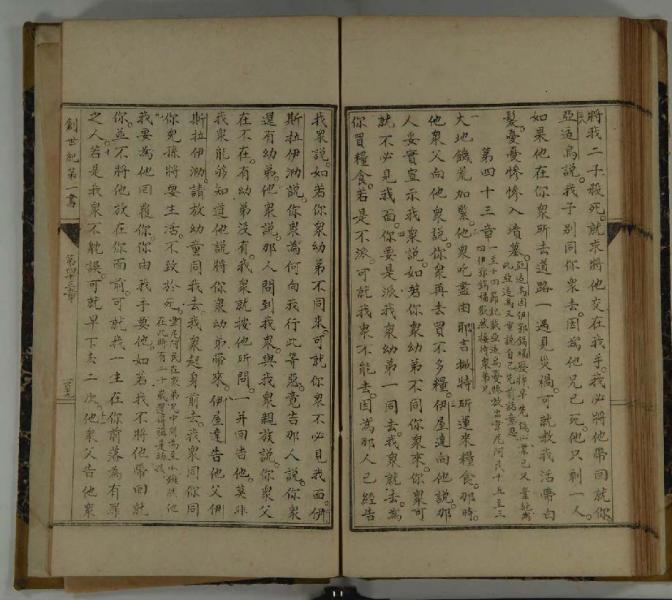 將我二子殺死。就求將他交在我手。我必將他帶回就你
說。我子別同你衆去。因為他兄已死。他只剩一人。
如果他在你衆所去道路一遇見災禍。可就教我活帶白
髮憂憂慘慘入墳墓。
第四十三章
大地饑荒加緊。他衆吃盡由耶吉撇將所運來糧食。那時
他衆父向他衆說。你衆再去買不多糧。伊屋達向他說。那
人妥實宣示我衆說。如若你衆幼弟不同你衆來。你衆可
就不必見我面。你要是派我衆幼弟一同去。我衆就去。為
你買糧食。若是不派。可就我衆不能去。因為那人已經告
我衆說。如若你衆幼弟不同來。可就你衆不必見我面。伊
斯拉伊泐說。你衆為何向我行此等惡。竟告那人說。你衆
還有幼弟。他衆說。那人問到我衆與我衆親族說。你衆父
在不在。有幼弟沒有。我衆就按他所問一一并回告他。莫非
我衆能彀知道他說將你衆幼弟帶來。伊屋達告他父伊
斯拉伊泐。請放幼童同我去。我衆起身前去。我衆同你同
你兒孫將要生活不致於死。
我要為他回覆你。你由我手要他。如若我不將他帶回就
你。並不將他放在你面前。可就我一生在你前落為有罪
之人。若是我衆不耽誤。可就早下去二次。他衆父告他衆
創世紀第一書